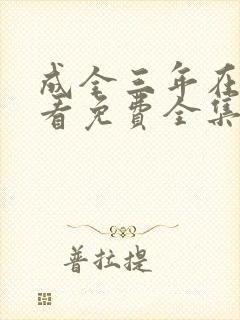 成全三年在
看免费全集
普拉提